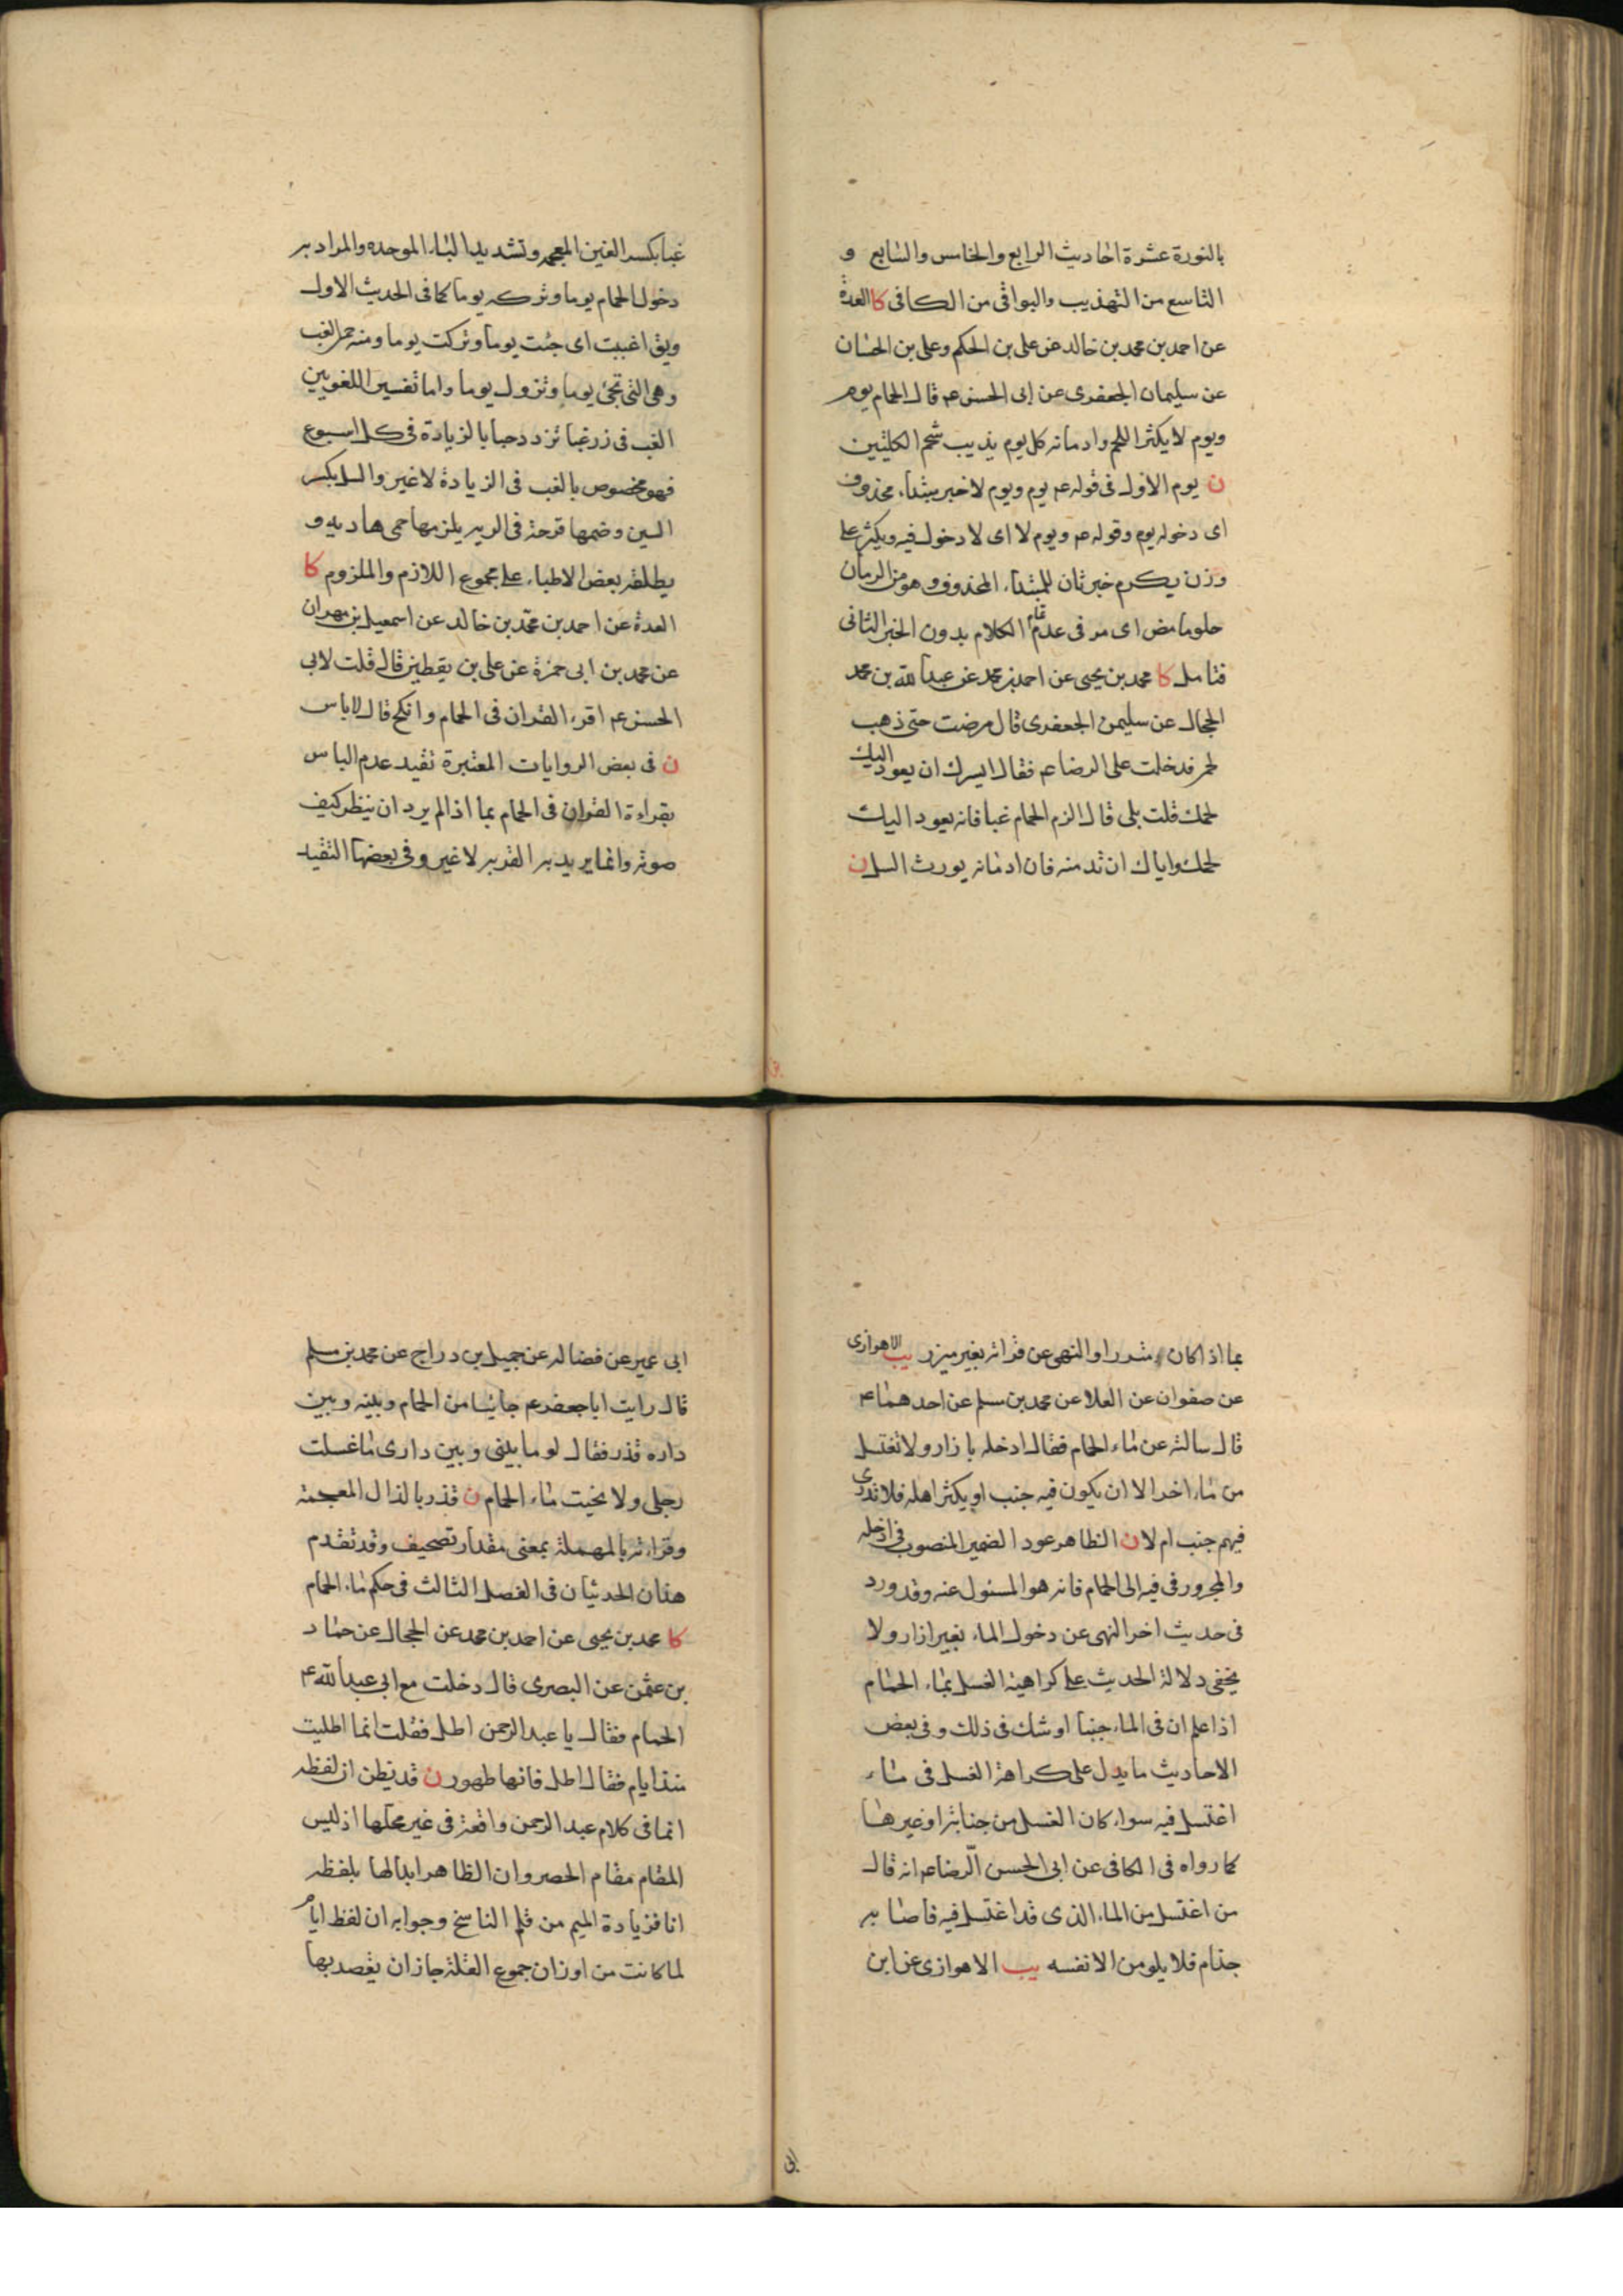 بالنورة عشرة احاديث الرابع والخامس والسابع و
التاسع من التهذيب والبواقى من الكافى كا العدة
عن احمد بن محمد بن خالد عن على بن الحكم وعلى بن الحسان
عن سليمان الجعفرى عن ابى الحسن ع قال الحمام يوم
ويوم لا يكثر اللحم وادمانه كل يوم يذيب شحم الكليتين
ن يوم الاول فى قوله ع يوم ويوم لا خبر مبتداء محذوف
اى دخوله يوم وقوله ع ويوم لا اى لا دخول فيه ويكثر على
وزن يكرم خبر ثان للمبتداء المحذوف وهو من الرمان
حلو حامض اى مر فى عدم تمام الكلام بدون الخبر الثانى
فتامل كا محمد بن يحيى عن احمد بن محمد عن عبد الله بن محمد
الحجال عن سليمن الجعفرى قال مرضت حتى ذهب
لحمى فدخلت على الرضا ع فقال ايسرك ان يعود اليك
لحمك قلت بلى قال الزم الحمام غبا فانه يعود اليك
لحمك واياك ان تدمنه فان ادمانه يورث السل ن
غبا بكسر الغين المعجمه وتشديد الباء الموحده والمراد به
دخول الحمام يوما وتركه يوما كما فى الحديث الاول
ويق اغببت اى جئت يوما وتركت يوما ومنه حمى الغب
وهى التى تجئ يوما وتزول يوما واما تفسير اللغويين
الغب فى زر غبا تزدد حبا بالزيادة فى كل اسبوع
فهو مخصوص بالغب فى الزيادة لا غير والسل بكسر
السين وضمها قرحة فى الريه يلزمها حمى هاديه و
يطلقه بعض الاطباء على مجموع اللازم والملزوم كا
العدة عن احمد بن محمد بن خالد عن اسمعيل بن مهران
عن محمد بن ابى حمزة عن على بن يقطين قال قلت لابى
الحسن ع اقرء القران فى الحمام وانكح قال لا باس
ن فى بعض الروايات المعتبرة تقيد عدم الباس
بقراءة القران فى الحمام بما اذا لم يرد ان ينظر كيف
صوته وانما يريد به القربه لا غير وفى بعضها التقيد
بما اذا كان متزرا والنهى عن قراته بغير ميزر يب الاهوازى
عن صفوان عن العلا عن محمد بن مسلم عن احدهما ع
قال سالته عن ماء الحمام فقال ادخله بازار ولا تغتسل
من ماء اخر الا ان يكون فيه جنب او يكثر اهله فلا تدرى
فيهم جنب ام لا ن الظاهر عود الضمير المنصوب فى ادخله
والمجرور فى فيه الى الحمام فانه هو المسئول عنه وقد ورد
فى حديث اخر النهى عن دخول الماء بغير ازار ولا
يخفى دلالة الحديث على كراهية الغسل بماء الحمام
اذا علم ان فى الماء جنبا او شك فى ذلك وفى بعض
الاحاديث ما يدل على كراهة الغسل فى ماء
اغتسل فيه سواء كان الغسل من جنابة او غيرها
كما رواه فى الكافى عن ابى الحسن الرضا ع انه قال
من اغتسل من الماء الذى قد اغتسل فيه فاصابه
جذام فلا يلومن الا نفسه يب الاهوازى عن ابن
ابى عمير عن فضاله عن جميل بن دراج عن محمد بن مسلم
قال رايت ابا جعفر ع جائيا من الحمام وبينه وبين
داره قذر فقال لو ما بينى وبين دارى ما غسلت
رجلى ولا نحيت ماء الحمام ن قذر بالذال المعجمة
وقراءته بالمهملة بمعنى مقدار تصحيف وقد تقدم
هذان الحديثان فى الفصل الثالث فى حكم ماء الحمام
كا محمد بن يحيى عن احمد بن محمد عن الحجال عن حماد
بن عثمن عن البصرى قال دخلت مع ابى عبد الله ع
الحمام فقال يا عبد الرحمن اطل فقلت انما اطليت
منذ ايام فقال اطل فانها طهور ن قد يظن ان لفظه
انما فى كلام عبد الرحمن واقعة فى غير محلها اذ ليس
المقام مقام الحصر وان الظاهر ابدالها بلفظه
انا فزيادة الميم من قلم الناسخ وجوابه ان لفظ ايام
لما كانت من اوزان جموع القلة جاز ان يقصد بها